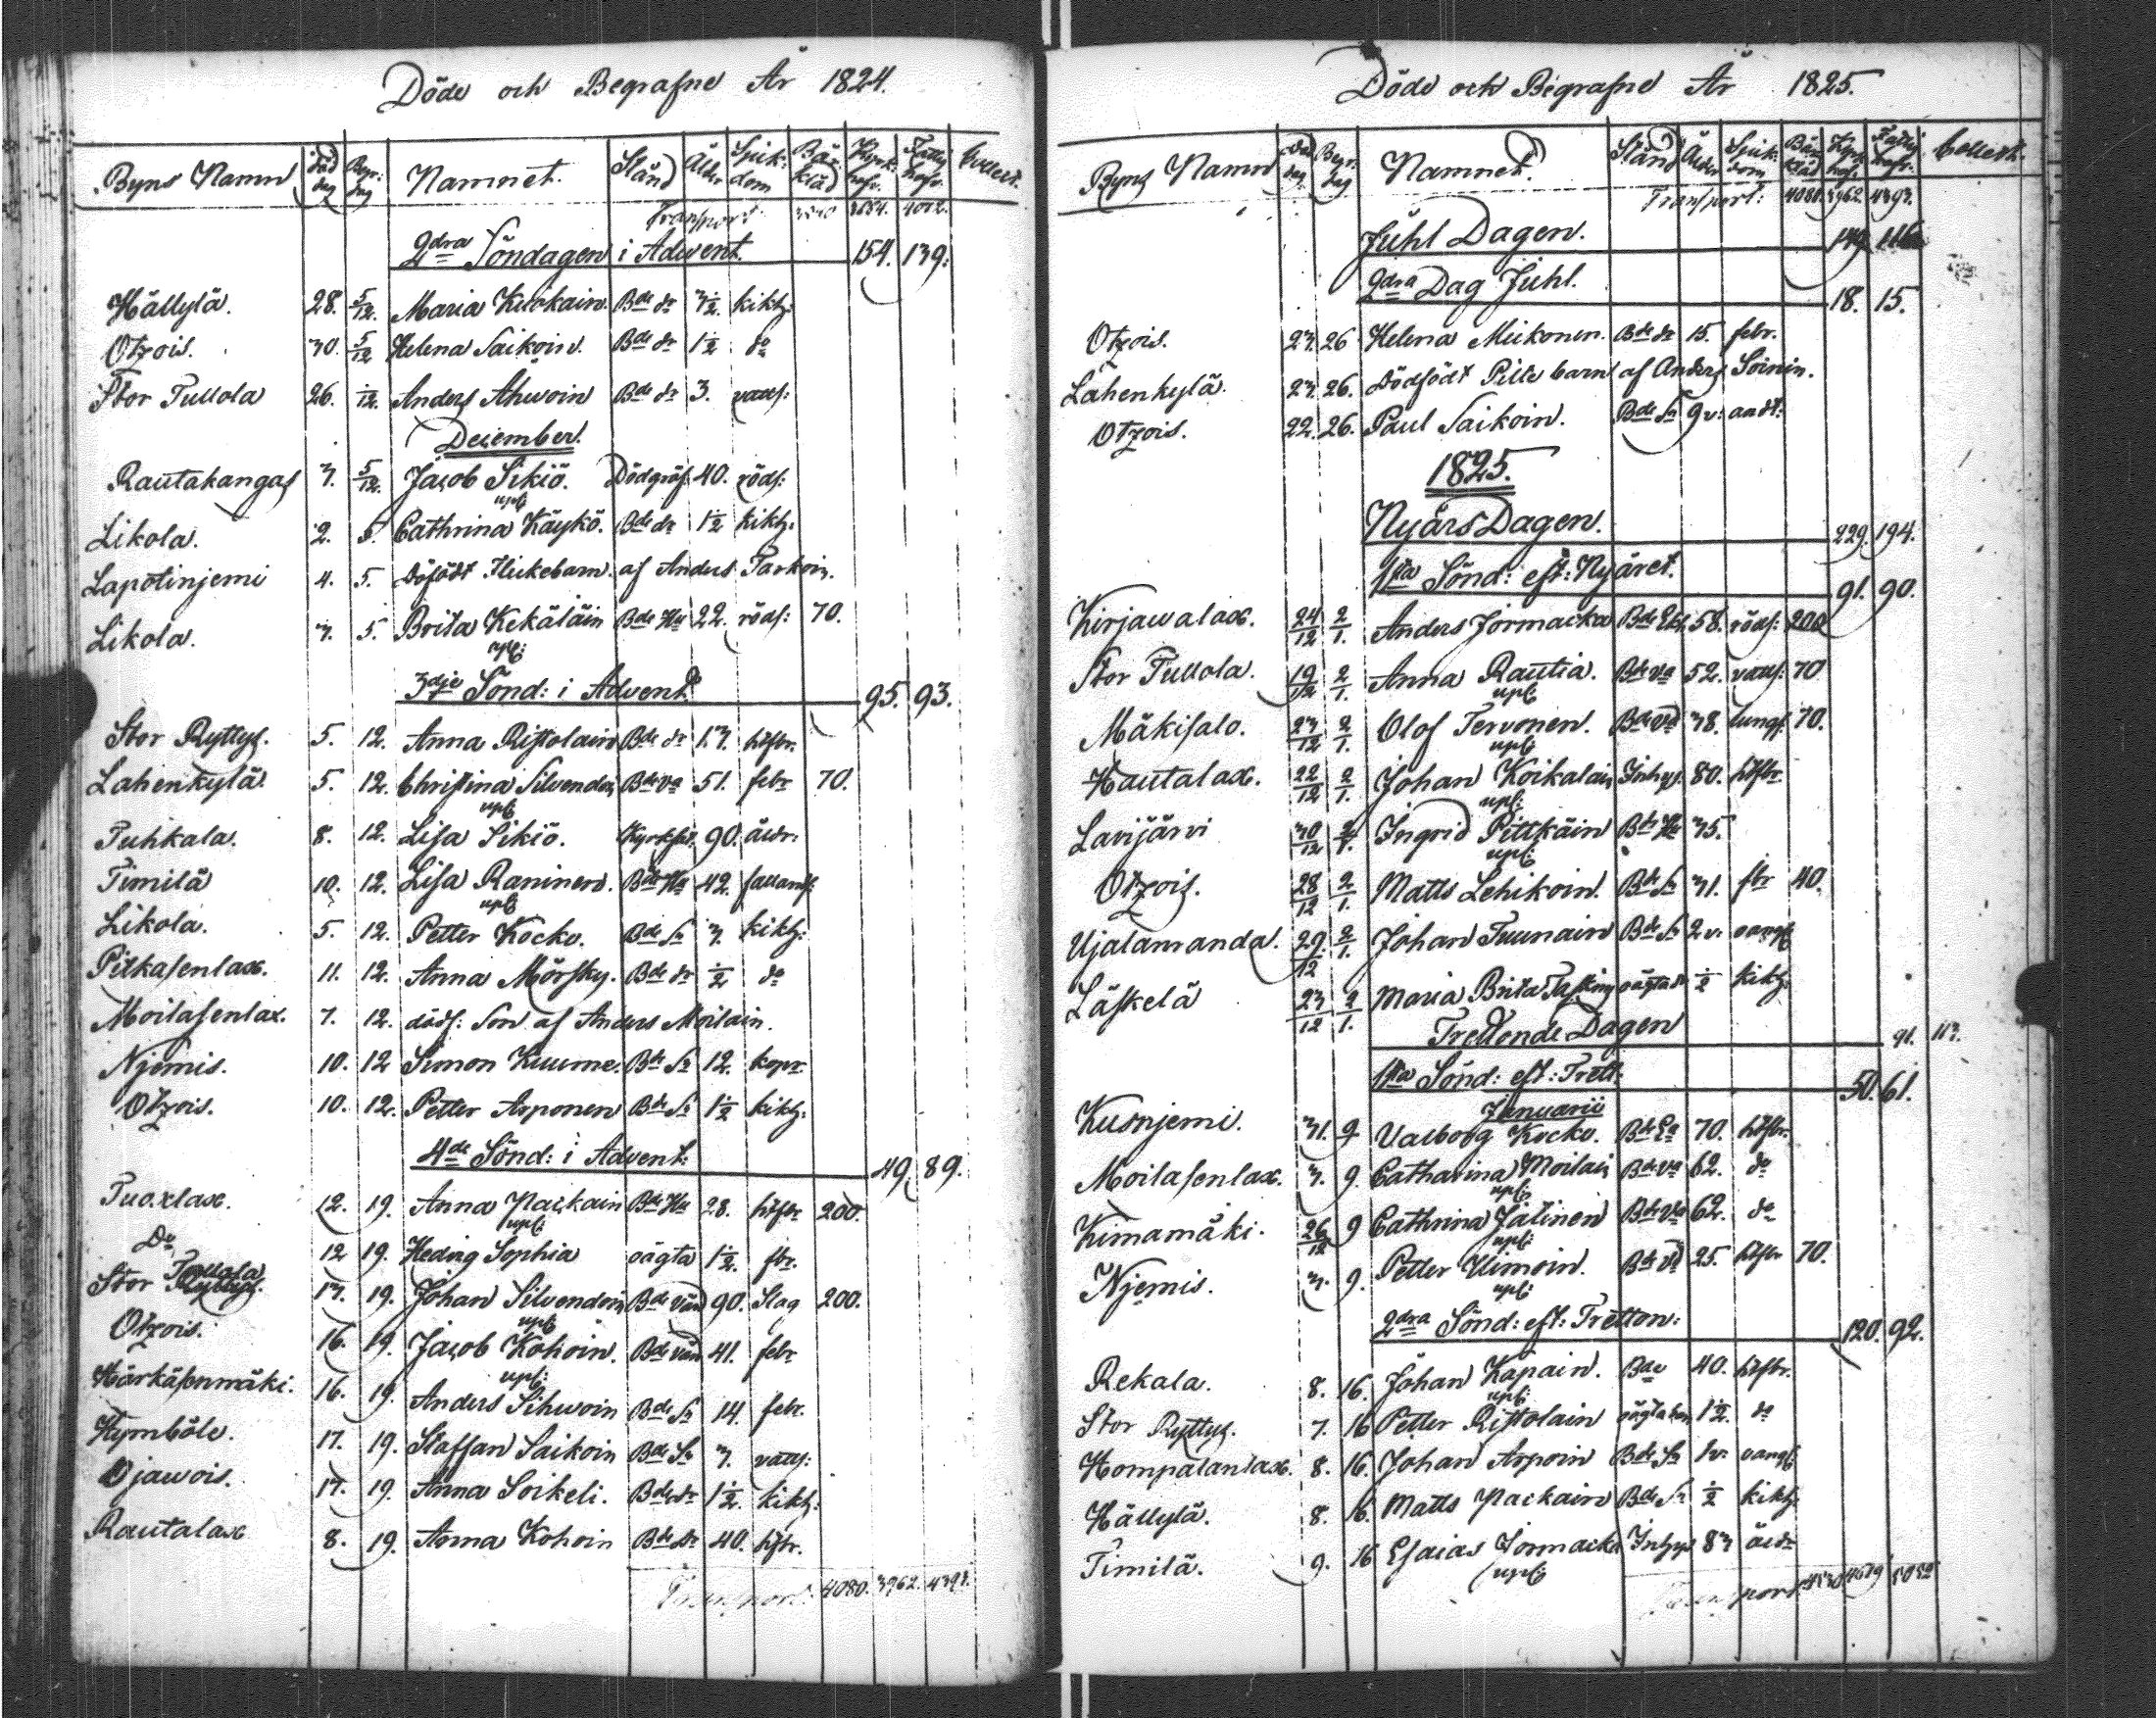 Döde och Begrafne År 1824.
Byns Namn Död dag Begr: dag Namnet. Stånd Ålder Sjuk: dom Bår kläd Kyrk: hafv. Fattig hafv. Collect.
Transport: 3684. 4012.
2dra Söndagen i Advent. 154. 139.
Hällylä. 28. 5/12. Maria Kuokain. Bde dr 3½. kikh:
Otzois. 30. 5/12 Helena Saikoin. Bde dr 1½ do
Stor Tullola 26. /12. Anders Ahwoin Bde dr 3. vatts:
December.
Rautakangas 3. 5/12. Jacob Sikiö. Dödgräf. 40. röds:
upl:
Likola. 2. 5. Cathrina Käykö. Bde dr 1½ kikh:
Lapotinjemi 4. 5. Döfödt Flickebarn af Anders Tarkoin.
Likola. 3. 5. Brita Kekäläin Bde Hu 22. röds: 70.
upl:
3dje Sönd: i Advent. 95. 93.
Stor Ryttys. 5. 12. Anna Ristolain Bde dr 13. höftr.
Lahenkylä. 5. 12. Christina Silvendoin Bde Va 51. febr 70.
upl:
Puhkala. 8. 12. Lisa Sikiö. 90. åldr:
Timilä 10. 12. Lisa Raninen. Bde Hu 42. fallands:
upl:
Likola. 5. 12. Petter Kocko. Bde Sn 3. kikh:
Pitkasenlax. 11. 12. Anna Mörsky. Bde dr ½ do
Moilasenlax. 7. 12. dödf: Son af Anders Moilain.
Njemis. 10. 12 Simon Kuume. Bde Sn 12. kopr
Otzois. 10. 12. Petter Arponen Bde Sn 1½ kikh:
4de Sönd: i Advent: 49. 89.
Tuoxlax. 12. 19. Anna Packain Bde Hu 28. höftr 200.
upl:
Do 12 19. Hedvig Sophia oägta 1½. fbr.
Stor Tullola 17. 19. Johan Silvendoin Bde Vän 90. Slag 200.
upl:
Otzois. 16. 19. Jacob Kohoin. Bde Vän 41. febr
upl:
Härkäsenmäki. 16. 19. Anders Sihwoin Bde Sn 14. febr.
Hymböle. 17. 19. Staffan Saikoin Bde Sn 3. vatts:
Ojawois. 17. 19. Anna Soikeli. Bde dr 1½. kikh:
Rautalax 8. 19. Anna Kohoin Bde dr 40. höftr.
Transport: 4080. 3962. 4393.
Döde och Begrafne År 1825.
Byns Namn Död dag Begr: dag Namnet. Stånd Ålder Sjuk: dom Bår kläd Kyrk hafv. Fattig hafv. Collect.
Transport: 4080. 3962. 4393.
Juhl Dagen.
2dra Dag Juhl. 18. 15.
Otzois. 23. 26 Helena Meikonen. Bde dr 15. febr.
Lahenkylä. 23. 26. Dödfödt Pilte barn af Anders Soinin.
Otzois. 22. 26. Paul Saikoin. Bde Sn 9 v: andt:
1825.
NyårsDagen. 229. 194.
1sta Sönd: eft: Nyåret. 91. 90.
Kirjawalax. 24/12 2/1. Anders Jormacka Bde Ekl. 58. röds: 200
Stor Tullola. 19/12 2/1. Anna Rautia. Bde Va 52. vatts: 70
upl:
Mäkisalo. 23/12 2/1. Olof Tervonen. Bde Vd 38. lungs. 70.
upl:
Hautalax. 22/12 2/1. Johan Koikalain Inhys. 80. höftr.
upl:
Lavijärvi 30/12 2/1. Ingrid Pittkäin Bde Hu 35.
upl:
Otzois. 28/12 2/1. Matts Lehikoin. Bde Sn 31. fbr 40.
Ujalamanda. 29/12 2/1. Johan Tuunain Bde Sn 2 v. oangf
Läskelä 23/12 2/1. Maria Brita Tasking oägta dr ½ kikh:
Trettonde Dagen 91. 113.
1sta Sönd: eft: Trett: 50. 61.
Januarii
Kusnjemi. 31. 9 Valborg Kocko. Bde Ea 70. höftr.
Moilasenlax. 3. 9. Catharina Moilain Bde Va 62. do
upl:
Kimamäki. 26/12 9 Cathrina Jälinen Bde Va 62. do
upl:
Njemis. 3. 9. Petter Uimoin. Bde Vd 25. höftr 70.
upl:
2dra Sönd: eft: Tretton: 120. 92.
Rekala. 8. 16. Johan Kapain. Bde 40. höftr.
upl:
Stor Ryttys. 7. 16 Petter Ristolain oägta 1½. do
Kompalanlax. 8. 16. Johan Arpoin Bde Sn 1v: oangf
Hällylä. 8. 16. Matts Packain Bde Sn ½ kikh:
Timilä. 9. 16 Esaias Jormacka Inhys 83 åldr
upl:
Transport: 4679